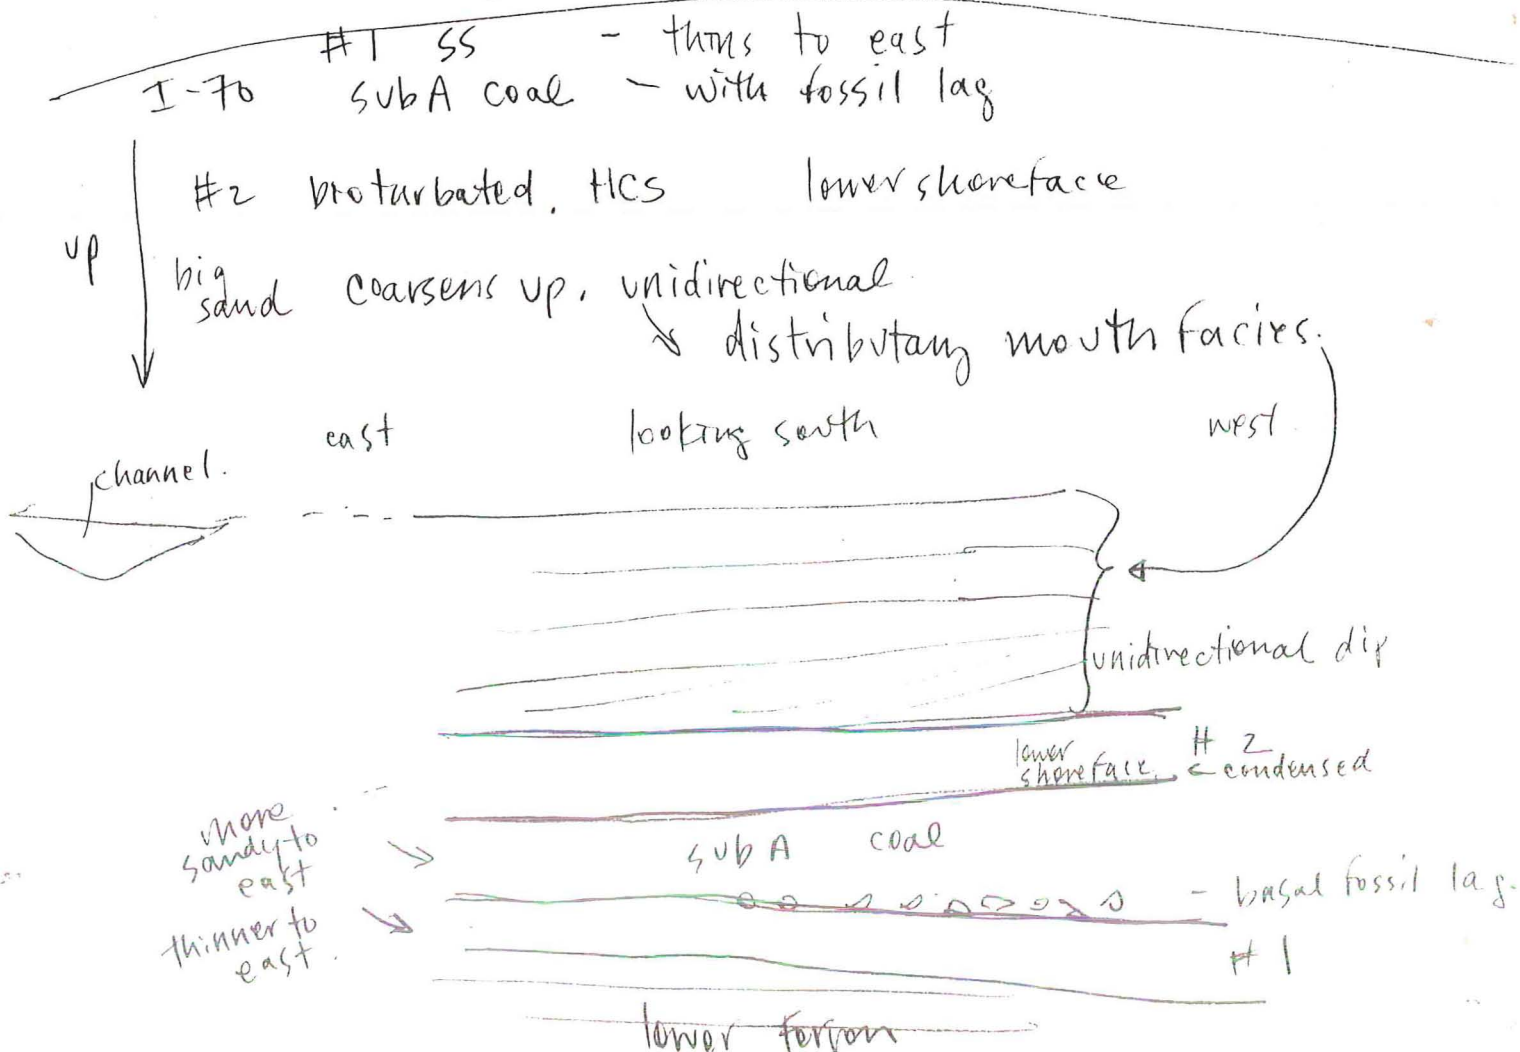 #1 SS - thins to east
I-70 subA coal - with fossil lag
#2 bioturbated, HCS lower shoreface
up
big sand coarsens up, unidirectional
distributary mouth facies.
east looking south west
channel.
unidirectional dip
lower shoreface
#2 condensed
more sandy to east
subA coal
- basal fossil lag.
thinner to east.
#1
lower Ferron